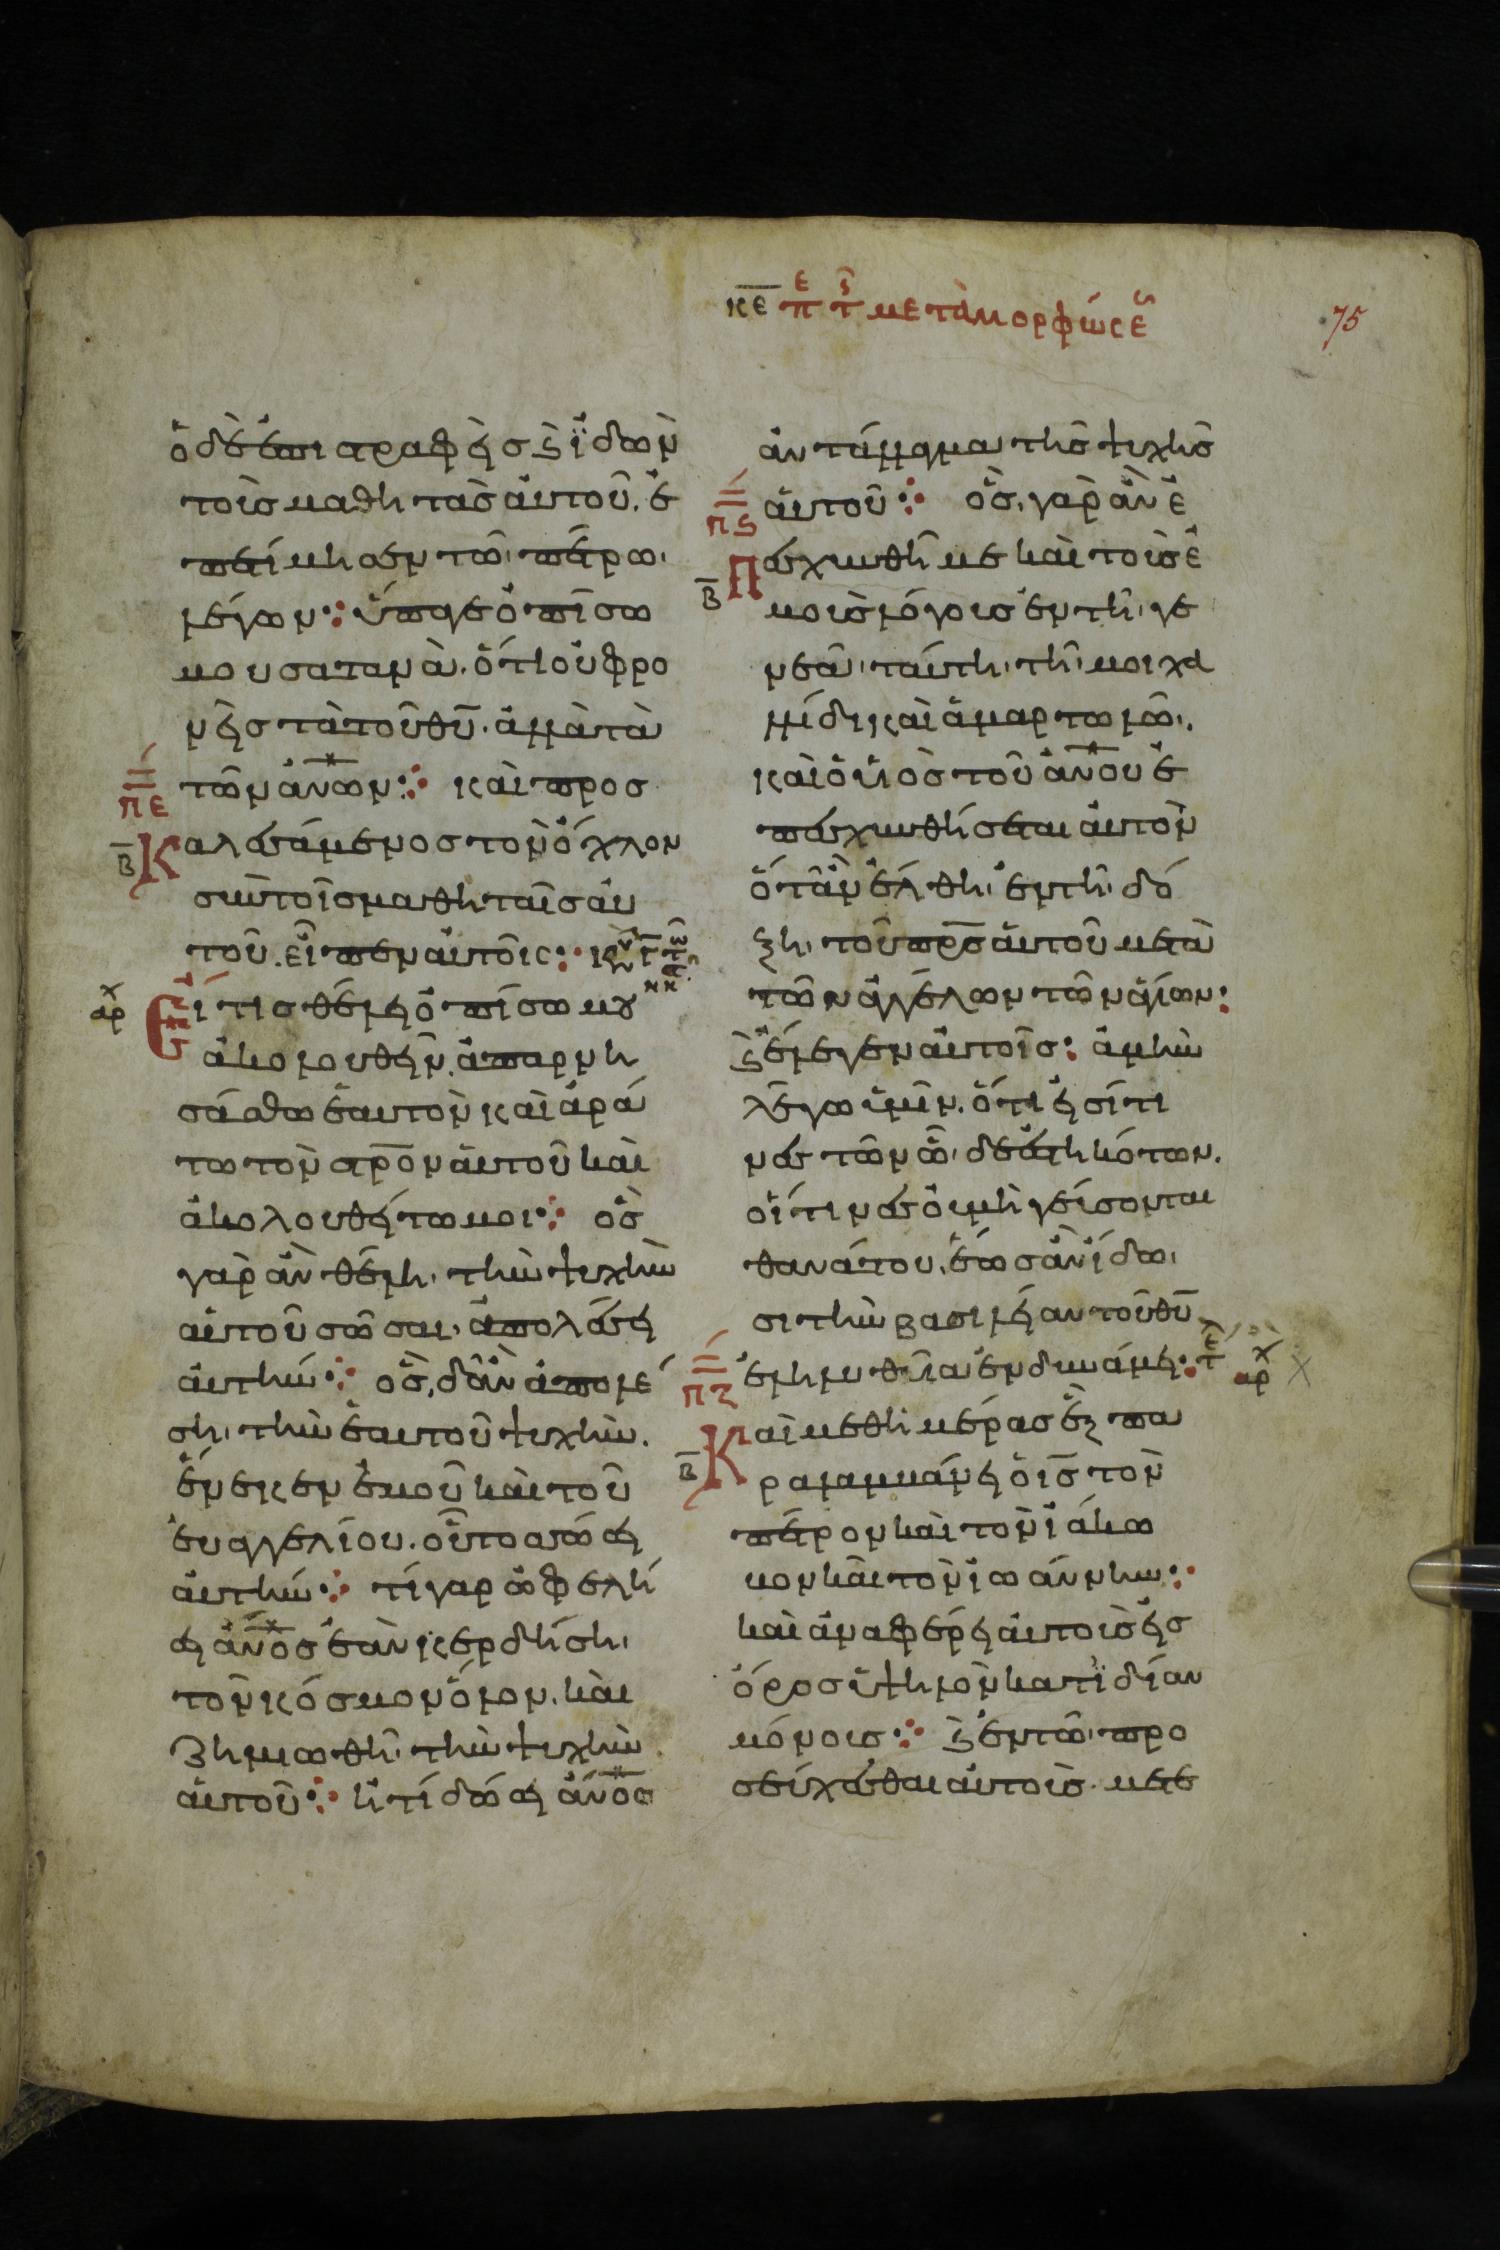 κε περι τῆς μεταμορφώσεως
75
ὁ δὲ ἐπιστραφεὶς καὶ ἰδὼν
τοὺς μαθητὰς αὐτοῦ. ἐ
πετίμησεν τῶ πέτρω.
λέγων: ὕπαγε ὀπίσω
μου σατανᾶ. ὅτι οὐ φρο
νεῖς τὰ τοῦ θῦ. ἀλλὰ τὰ
τῶν ἀνων: καὶ προσ
πε
β
καλεσάμενος τὸν ὄχλον
σὺν τοῖς μαθηταῖς αὐ
τοῦ. εἶπεν αὐτοῖς:
αρχ
Εἴ τις θέλει ὀπίσω μου
ἀκολουθεῖν. ἀπαρνη
σάσθω ἑαυτὸν καὶ ἀρά
τω τὸν στρον αὐτοῦ καὶ
ἀκολουθείτω μοι: ὃς
γὰρ ἂν θέλη τὴν ψυχὴν
αὐτοῦ σῶσαι. ἀπολέσει
αὐτήν: ὃς δ' ἂν ἀπολέ
ση τὴν ἑαυτοῦ ψυχὴν.
ἕνεκεν ἐμοῦ καὶ τοῦ
εὐαγγελίου. οὗτος σώσει
αὐτήν: τί γαρ ὠφελή
σει ἄνος ἐὰν κερδήση
τὸν κόσμον ὅλον. καὶ
ζημιωθῆ τὴν ψυχὴν
αὐτοῦ: ἢ τί δώσει ἄνος
ἀντάλλαγμα τῆς ψυχῆς
αὐτοῦ: ὃς γὰρ ἂν ἐ
πϛ
β
Παισχυνθῆ με καὶ τοὺς ἐ
μοὺς λόγους ἐν τῆ γε
νεᾶ ταύτη τῆ μοιχα
λίδι καὶ ἁμαρτωλῶ.
καὶ ὁ υἱὸς τοῦ ἀνου ἐ
παισχυνθήσεται αὐτὸν
ὅταν ἔλθη ἐν τῆ δό
ξη τοῦ πρς αὐτοῦ μετὰ
τῶν ἀγγέλων τῶν ἁγίων:
καὶ ἔλεγεν αὐτοῖς: ἀμὴν
λέγω ὑμῖν. ὅτι εἰσί τι
νες τῶν ὧδε ἑστηκότων.
οἵτινες οὐ μὴ γεύσονται
θανάτου. ἕως ἂν ἴδω
σι τὴν βασιλείαν τοῦ θῦ
ἐληλυθυῖαν ἐν δυνάμει: τε
αρχ
πζ
β
Καὶ μεθ' ἡμέρας ἓξ πα
ραλαμβάνει ὁ ις τὸν
πέτρον καὶ τὸν ἰάκω
βον καὶ τὸν ἰωάννην:
καὶ ἀναφέρει αὐτοὺς εἰς
ὄρος ὑψηλὸν κατ' ἰδίαν
μόνους: καὶ ἐν τῶ προ
σεύχεσθαι αὐτοὺς. μετε